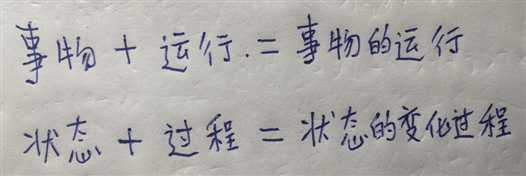 事物 + 运行.= 事物的运行
状态 + 过程 = 状态的变化过程